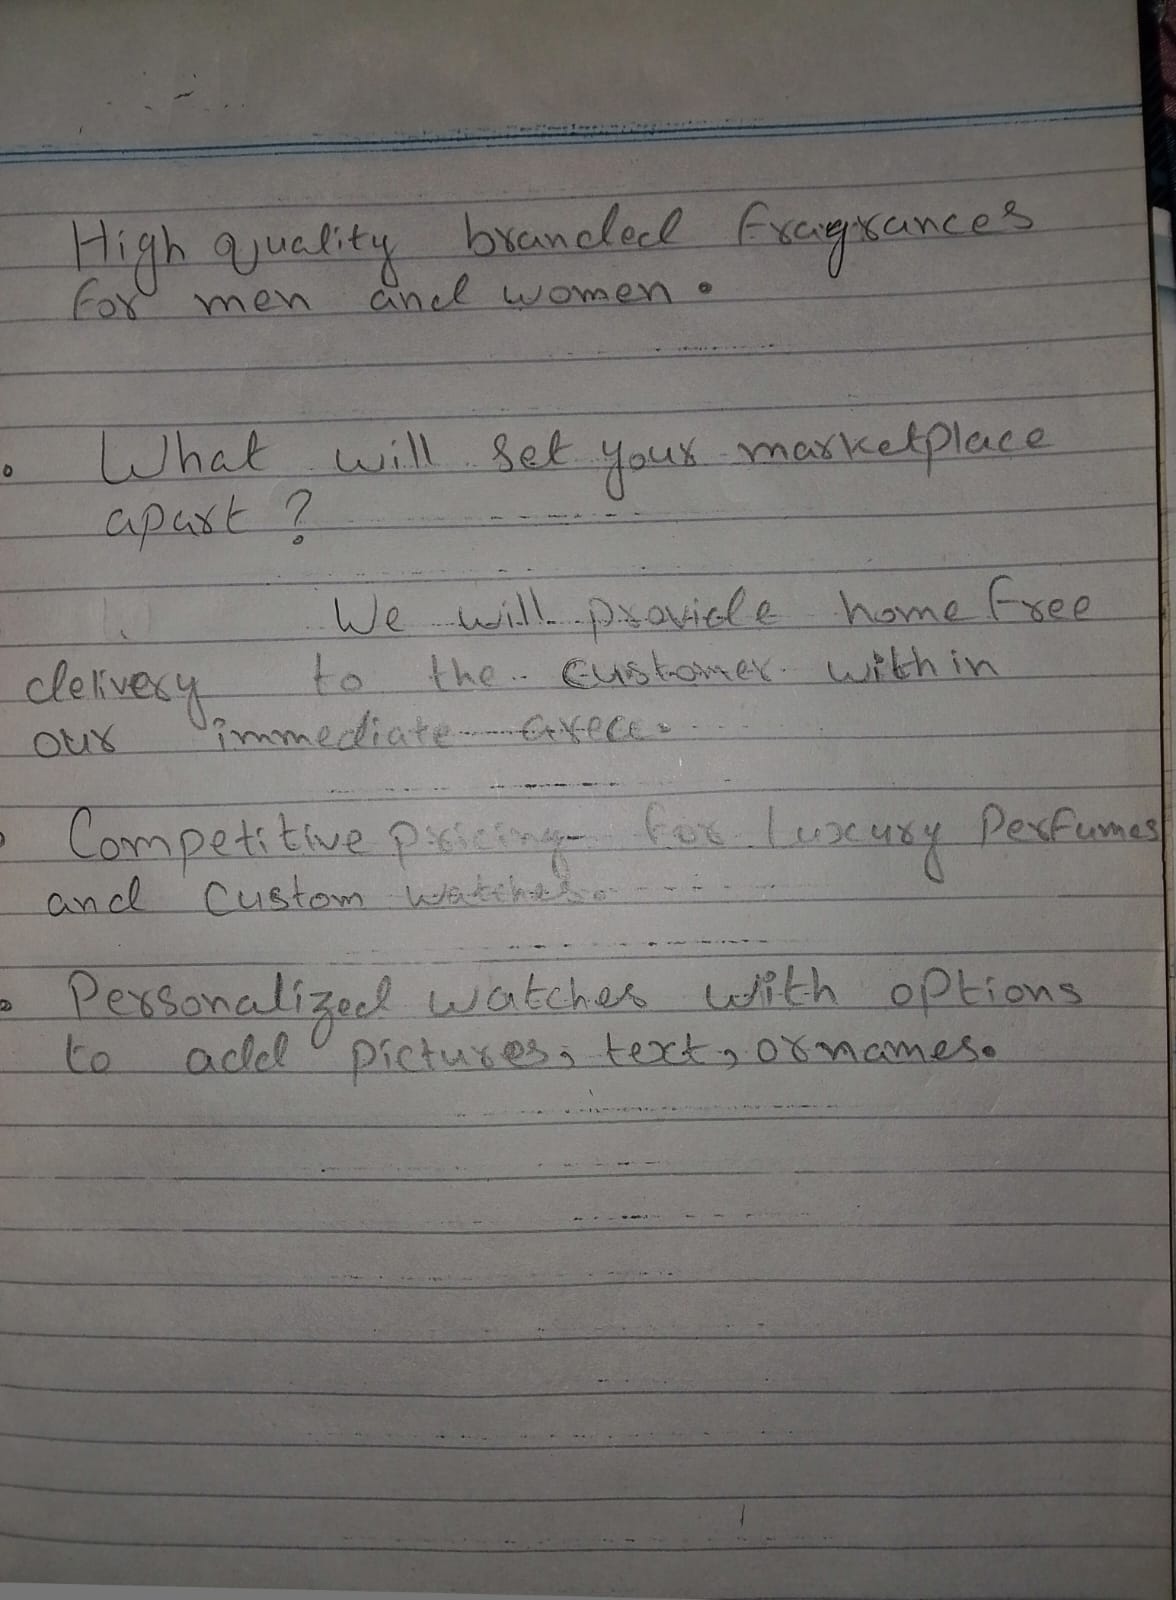 High quality branded fragrances
for men and women.
• What will set your marketplace
apart?
We will provide home free
delivery to the customer within
our immediate area.
• Competitive pricing for luxury Perfumes
and Custom watches.
• Personalized watches with options
to add pictures, text, or names.